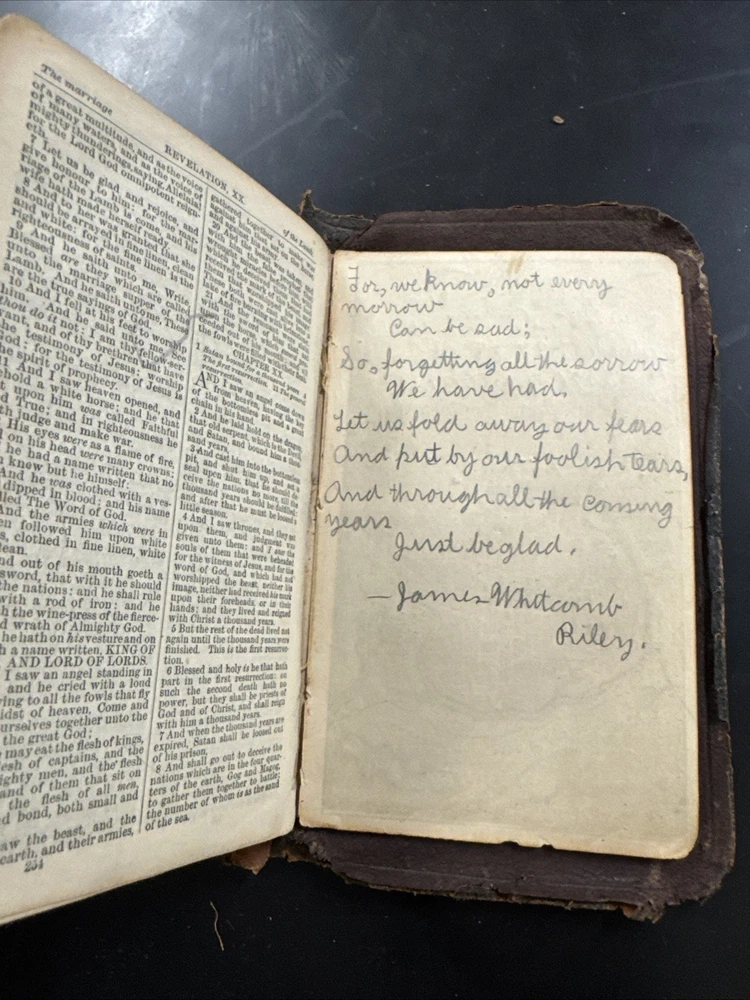 The marriage
REVELATION, XX.
of the Lamb.
of a great multitude, and as the voice
of many waters, and as the voice of
mighty thunderings, saying, Alleluia:
for the Lord God omnipotent reign-
eth.
7 Let us be glad and rejoice, and
give honour to him: for the mar-
riage of the Lamb is come, and his
wife hath made herself ready.
8 And to her was granted that she
should be arrayed in fine linen, clean
and white: for the fine linen is the
righteousness of saints.
9 And he said unto me, Write,
Blessed are they which are called
unto the marriage supper of the
Lamb. And he said unto me, These
are the true sayings of God.
10 And I fell at his feet to worship
him. And he said unto me, See
thou do it not: I am thy fellow-ser-
and of thy brethren that
the testimony of Jesus: worship
God: for the testimony of Jesus is
the spirit of prophecy.
11 And I saw heaven opened, and
behold a white horse; and he that
upon him was called Faithful
and True; and in righteousness he
judge and make war.
His eyes were as a flame of fire,
on his head were many crowns;
he had a name written, that no
knew but he himself.
And he was clothed with a ves-
dipped in blood: and his name
called The Word of God.
And the armies which were in
followed him upon white
clothed in fine linen, white
clean.
And out of his mouth goeth a
sword, that with it he should
the nations: and he shall rule
with a rod of iron: and he
the wine-press of the fierce-
and wrath of Almighty God.
he hath on his vesture and on
a name written, KING OF
AND LORD OF LORDS.
I saw an angel standing in
and he cried with a loud
saying to all the fowls that fly
midst of heaven, Come and
yourselves together unto the
the great God;
may eat the flesh of kings,
flesh of captains, and the
mighty men, and the flesh
and of them that sit on
the flesh of all men,
and bond, both small and
saw the beast, and the
earth, and their armies,
254
gathered together to make war
CHAPTER XX.
AND I saw an angel come down
from heaven, having the key
of the bottomless pit and a great
chain in his hand.
2 And he laid hold on the dragon,
that old serpent, which is the Devil,
and Satan, and bound him a thou-
sand years,
3 And cast him into the bottomless
pit, and shut him up, and set a
seal upon him, that he should de-
ceive the nations no more, till the
thousand years should be fulfilled:
and after that he must be loosed a
little season.
4 And I saw thrones, and they sat
upon them, and judgment was
given unto them: and I saw the
souls of them that were beheaded
for the witness of Jesus, and for the
word of God, and which had not
worshipped the beast, neither his
image, neither had received his mark
upon their foreheads, or in their
hands; and they lived and reigned
with Christ a thousand years.
5 But the rest of the dead lived not
again until the thousand years were
finished. This is the first resurrec-
tion.
6 Blessed and holy is he that hath
part in the first resurrection: on
such the second death hath no
power, but they shall be priests of
God and of Christ, and shall reign
with him a thousand years.
7 And when the thousand years are
expired, Satan shall be loosed out
of his prison,
8 And shall go out to deceive the
nations which are in the four quar-
ters of the earth, Gog and Magog,
to gather them together to battle:
the number of whom is as the sand
of the sea.
For, we know, not every
morrow
Can be sad;
So, forgetting all the sorrow
We have had,
Let us fold away our fears
And put by our foolish tears,
And through all the coming
years
Just be glad.
—James Whitcomb
Riley.